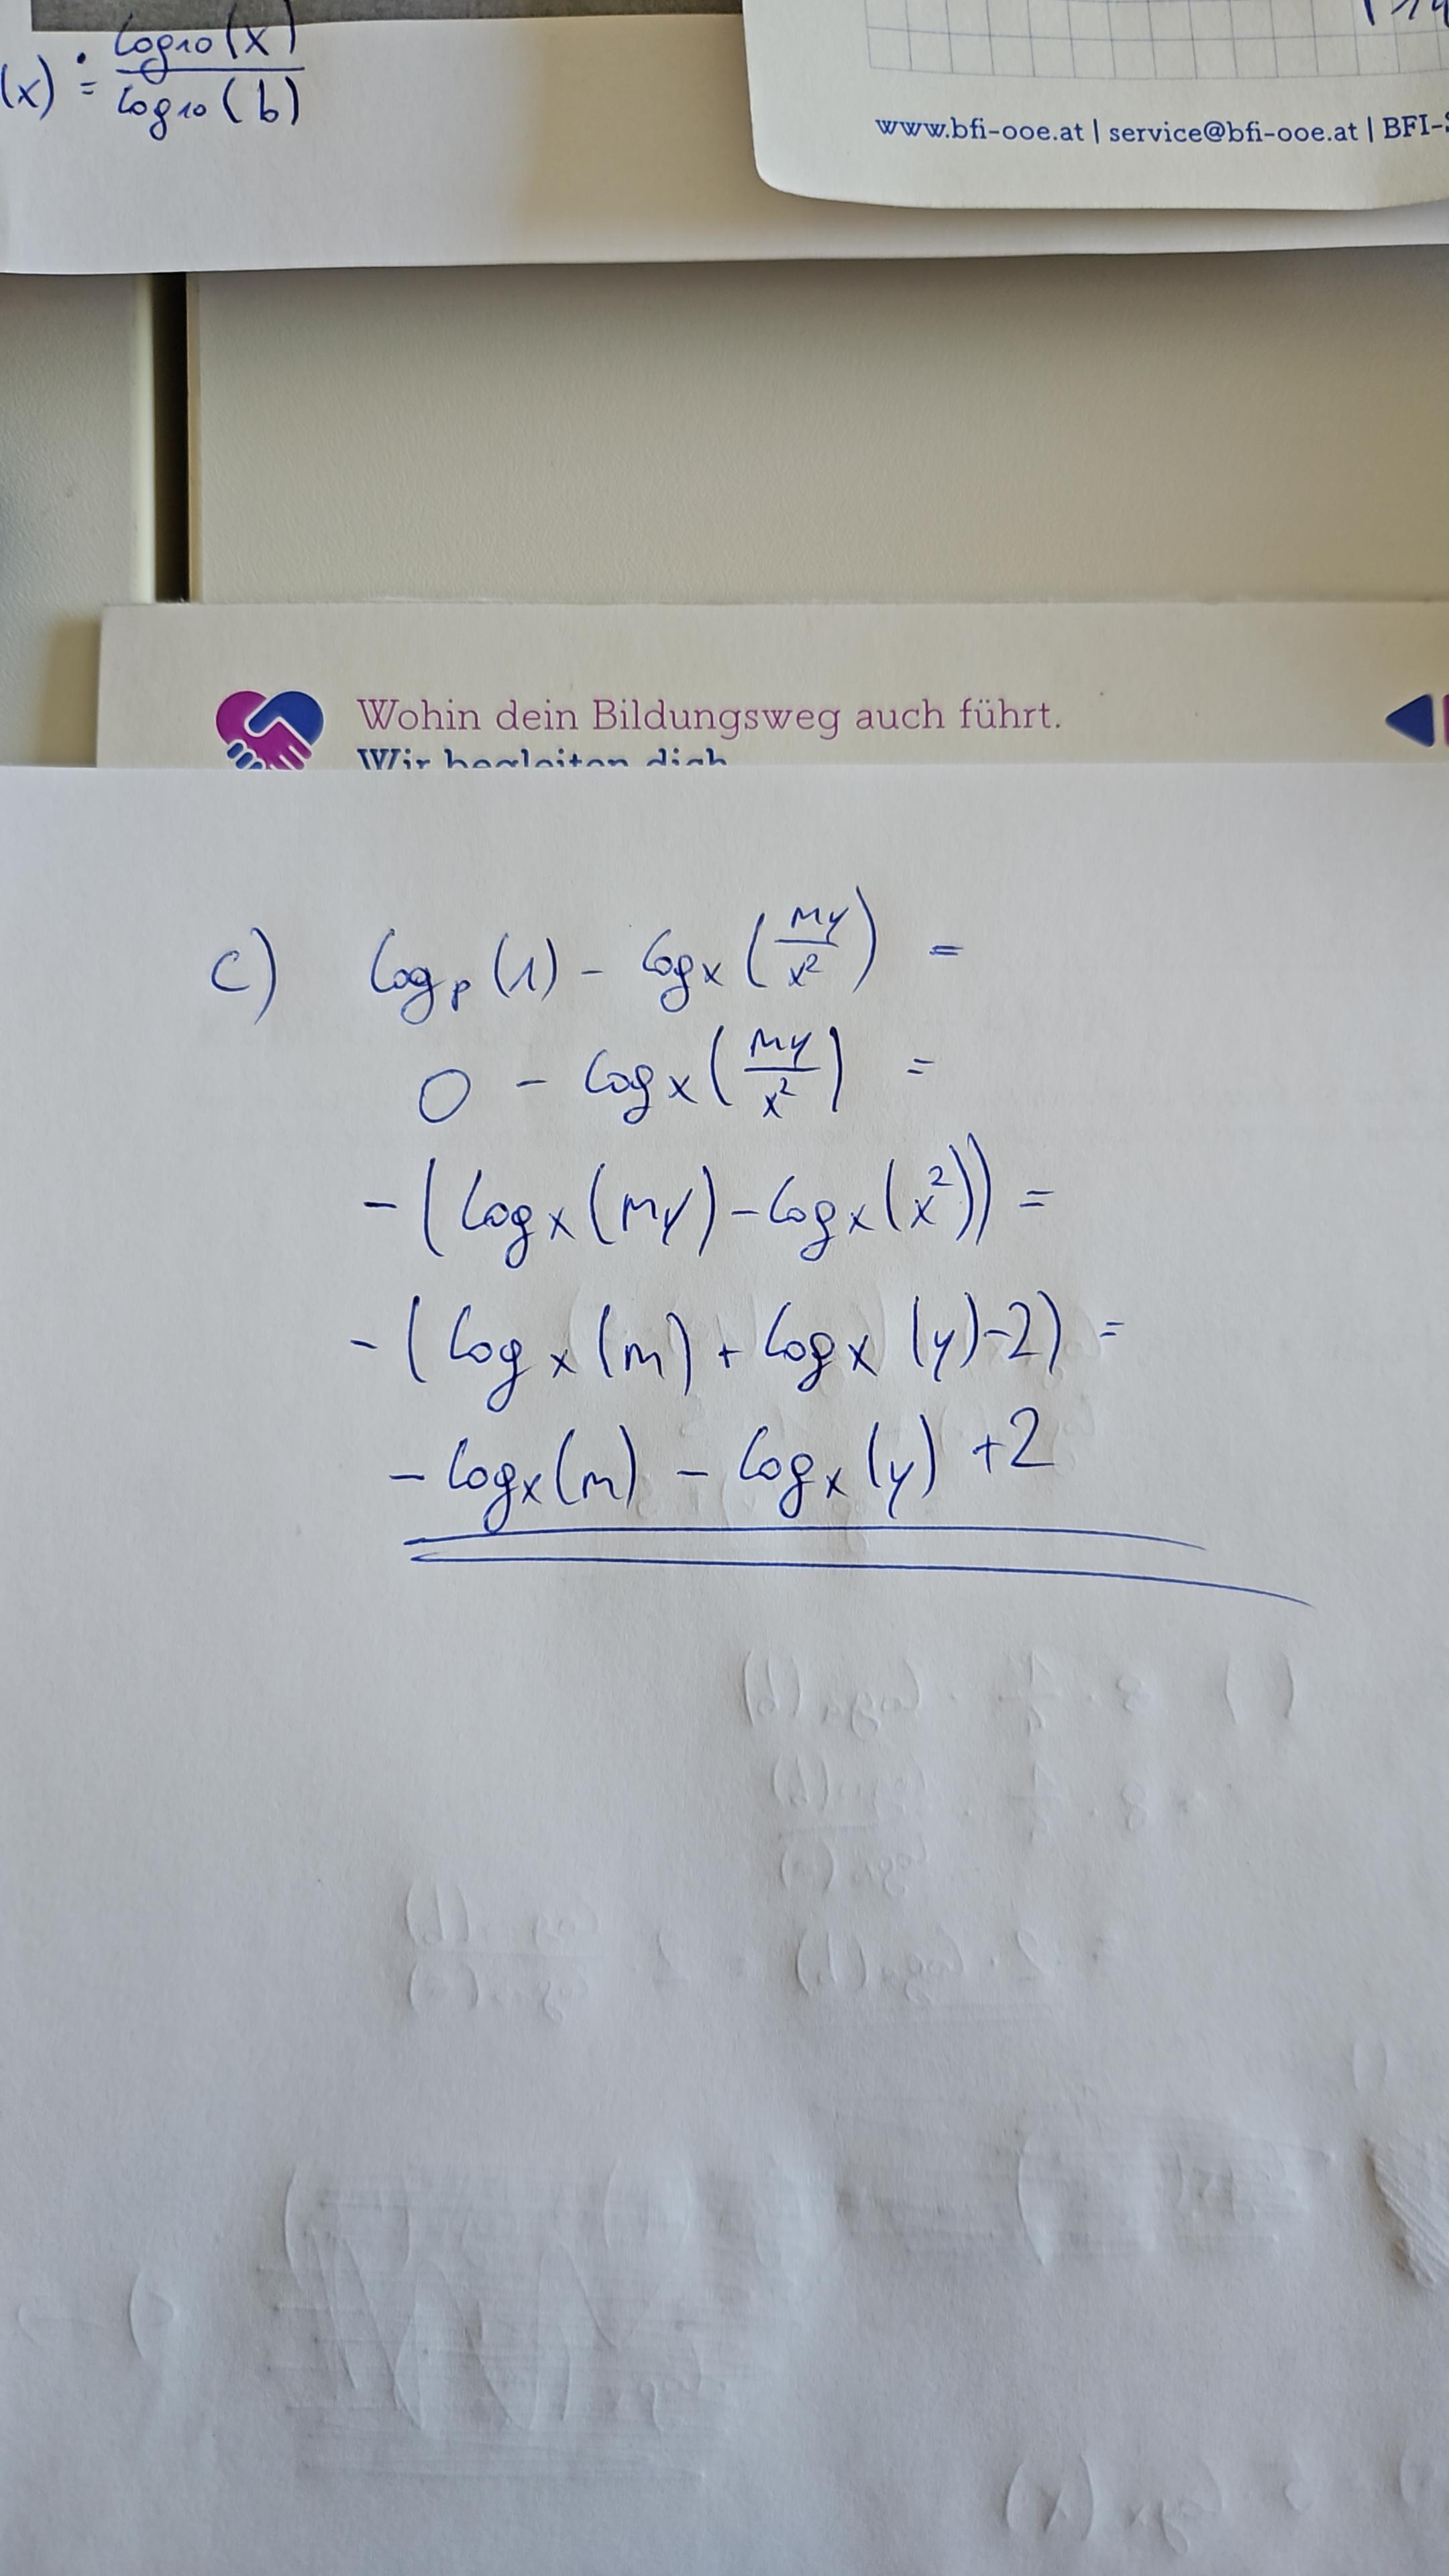 (x) = log₁₀(x)/log₁₀(b)
www.bfi-ooe.at | service@bfi-ooe.at | BFI-
Wohin dein Bildungsweg auch führt.
Wir begleiten dich
c) logₚ(1) - logₓ(my/x²) =
0 - logₓ(my/x²) =
-(logₓ(my) - logₓ(x²)) =
-(logₓ(m) + logₓ(y) - 2) =
-logₓ(m) - logₓ(y) + 2